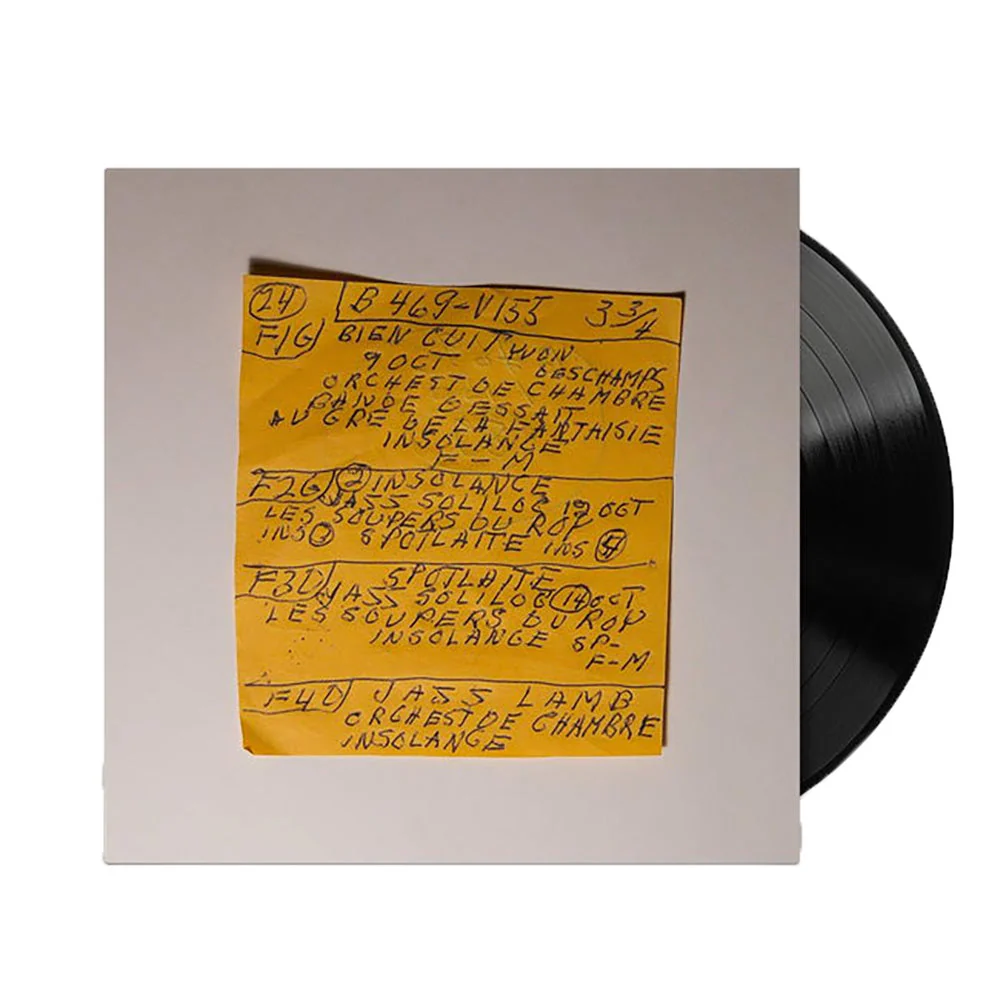 24 B 469-V155 3 3/4
F1G BIEN CUIT YVON
9 OCT DESCHAMPS
ORCHEST DE CHAMBRE
BANDE DESSAIT
AU GRE DE LA FANTAISIE
INSOLANGE
F-M
F2G 2 INSOLANGE
JASS SOLILOG 19 OCT
LES SOUPERS DU ROY
INS 3 SPOTLAITE INS 4
F3D SPOTLAITE
JASS SOLILOG 14 OCT
LES SOUPERS DU ROY
INSOLANGE SP-
F-M
F4D JASS LAMB
ORCHEST DE CHAMBRE
INSOLANGE